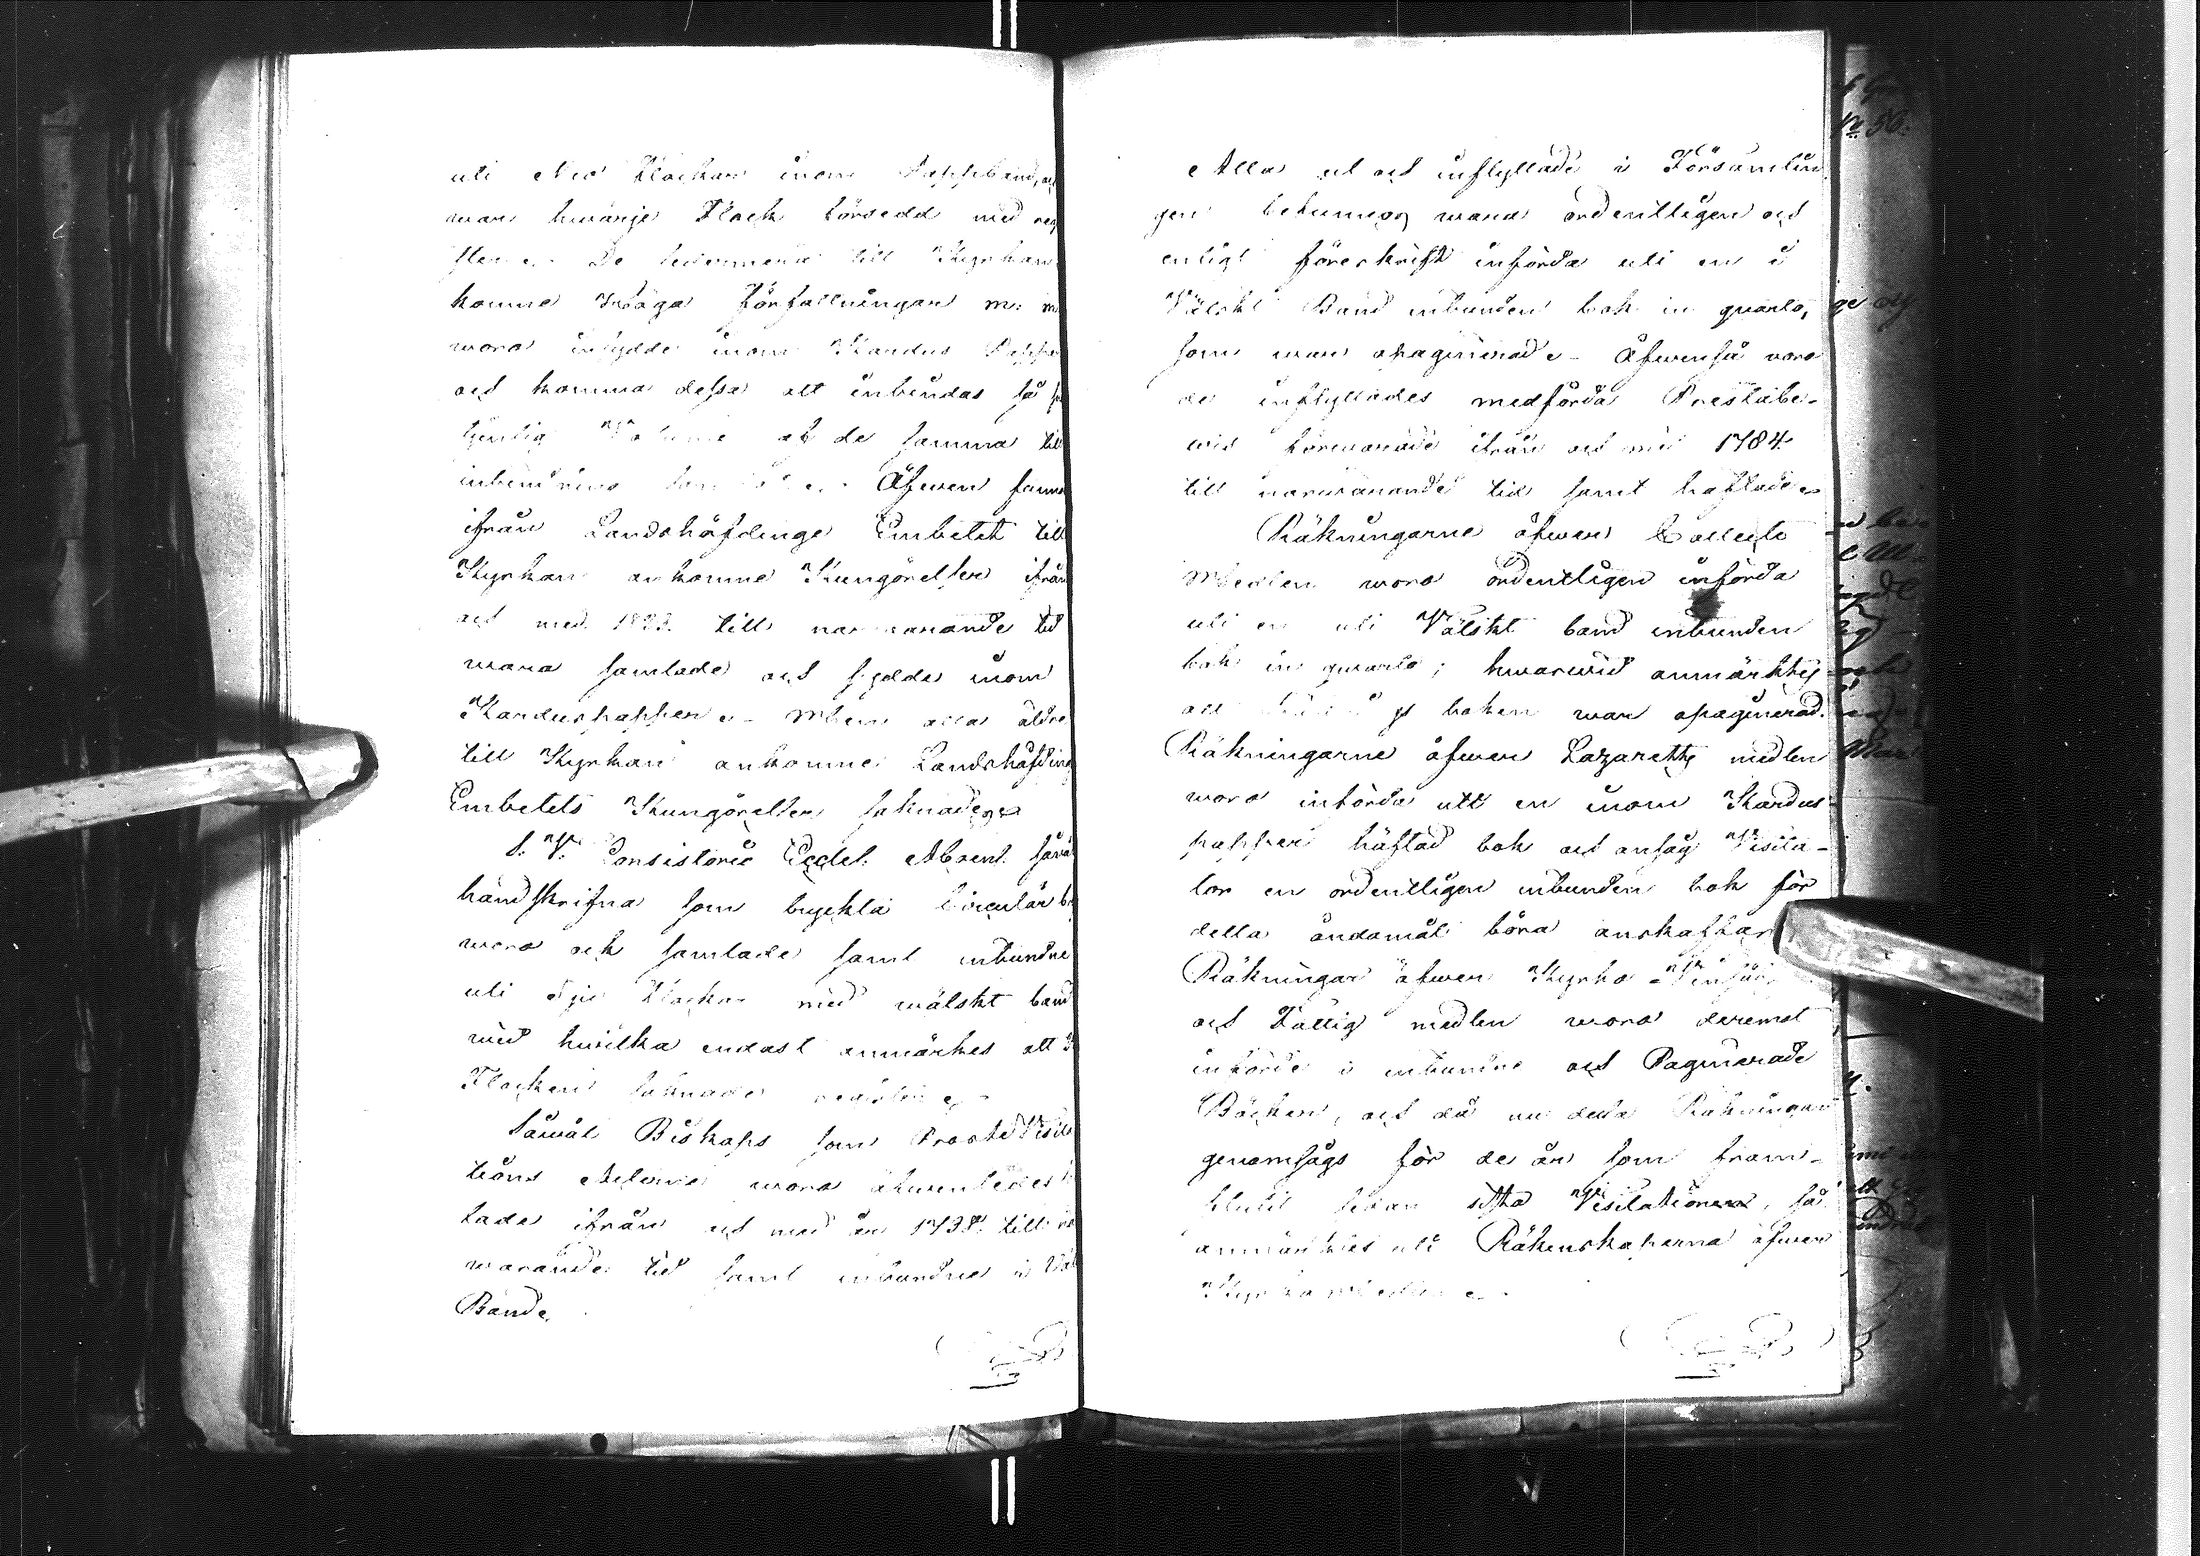 uti Nio Klockar inom Pappband, och
war hwarje Flock försedd med reg
ster. De sednomera till Kyrkan
komne Höga Författningar m: m
woro insydde inom Kardus Papper
och komma dessa att inbindas så
tjenlig Volume af de samma till
inbindning Äfwen samma
ifrån Landshöfdinge Embetet till
Kyrkan ankomne Kungörelser ifrån
och med 1823 till narwarande tid
wara samlade och sydde inom
Karduspapper. Men alla äldre
till Kyrkan ankomne Landshöfding
Embetets Kungörelser saknades
S. V. Consistorie Eccles. Abrens. såwäl
handskrifna som tryckta Circulär br
woro ock samlade samt inbundne
uti Flockar med wälskt band
wid hwilka endast anmärktes att
Flocken saknade register
Såwäl Biskops som Proste Visita
tions Acterne woro äfwenledes
lade ifrån och med år 1738 till när
warande tid samt inbundne i Väl
Band.
Alla ut och inflyttade i Försämlin
gen betunegz wara ordentligen och
enligt föreskrift införda uti en i
Välskt Band inbunden bok in quarto,
som war opaginerad. Äfwenså woro
de inflyttades medförda Prestabe-
wis förwarade ifrån och med 1784
till narwarande tid samt häftade
Räkningarne öfwer Collecte
Medlen woro ordentligen införda
uti en uti Välskt band inbunden
bok in quarto; hwarwid anmärktes
att boken war opaginerad.
Räkningarne öfwer Lazaretts medlen
woro införda uti en inom Kardus
papper häftad bok och ansåg Visita-
tor en ordentligen inbunden bok för
detta ändamål böra anskaffas
Räkningar öfwer Kyrko -
och Fattig medlen woro deremot
införde i inbundne och Paginerade
Böcker, och då nu dessa Räkningar
genomsågs för de år som fram-
flutit sedan sista Visitationen, så
anmärktes uti Räkenskaperna öfwer
Kyrko Medlen